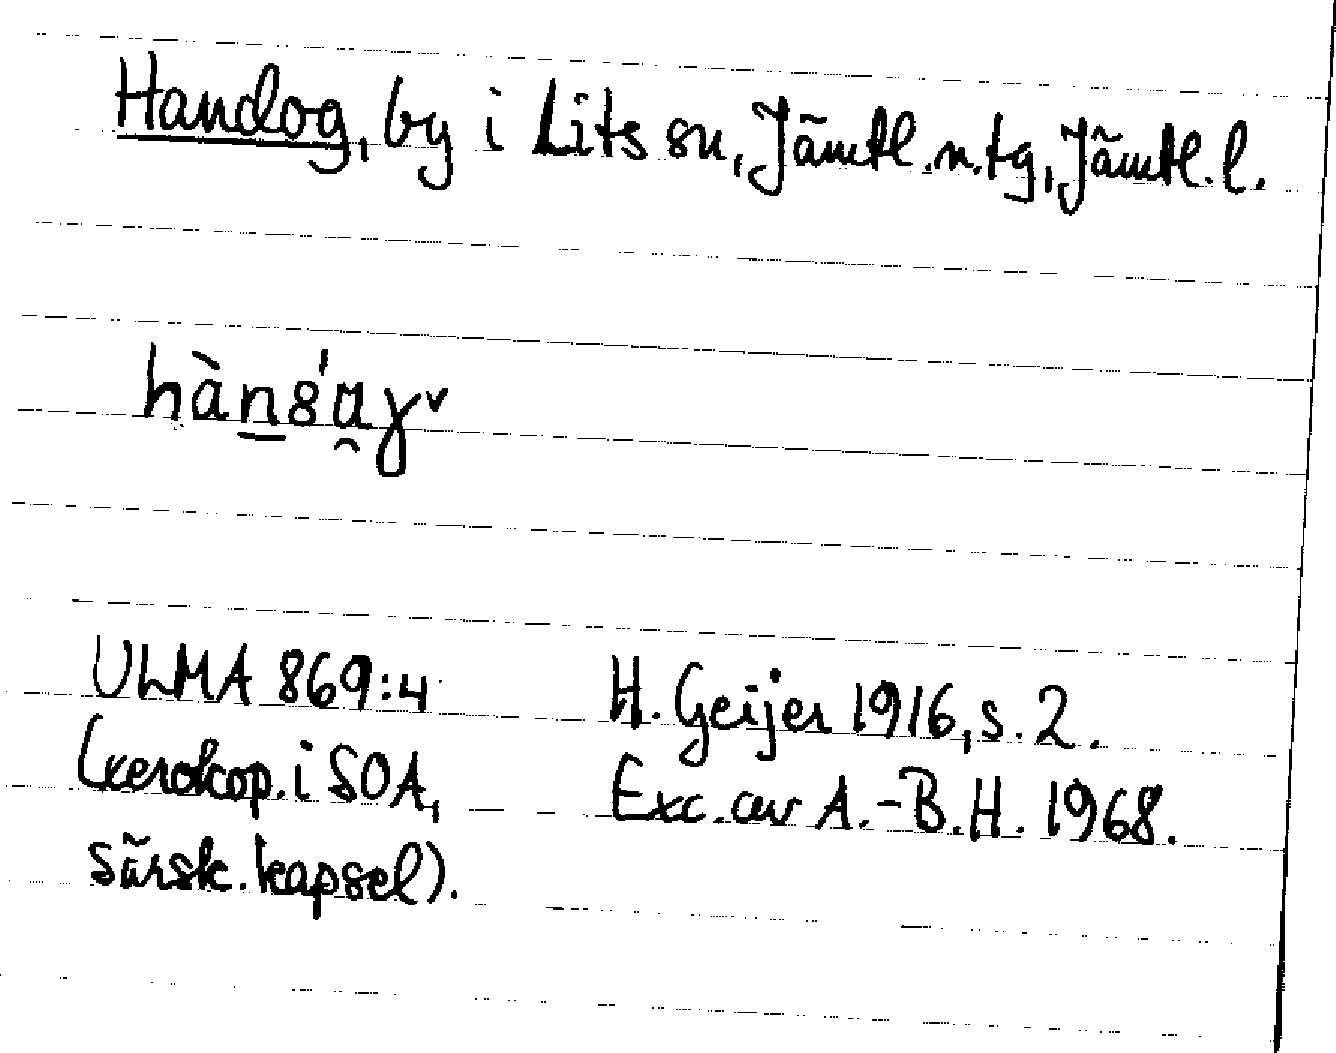 Handog, by i Lits sn, Jämtl. n. tg, Jämtl. l.
ULMA 869:4
H. Geijer 1916, s. 2.
(xerokop. i SOA,
Exc. av A.-B. H. 1968.
särsk. kapsel).